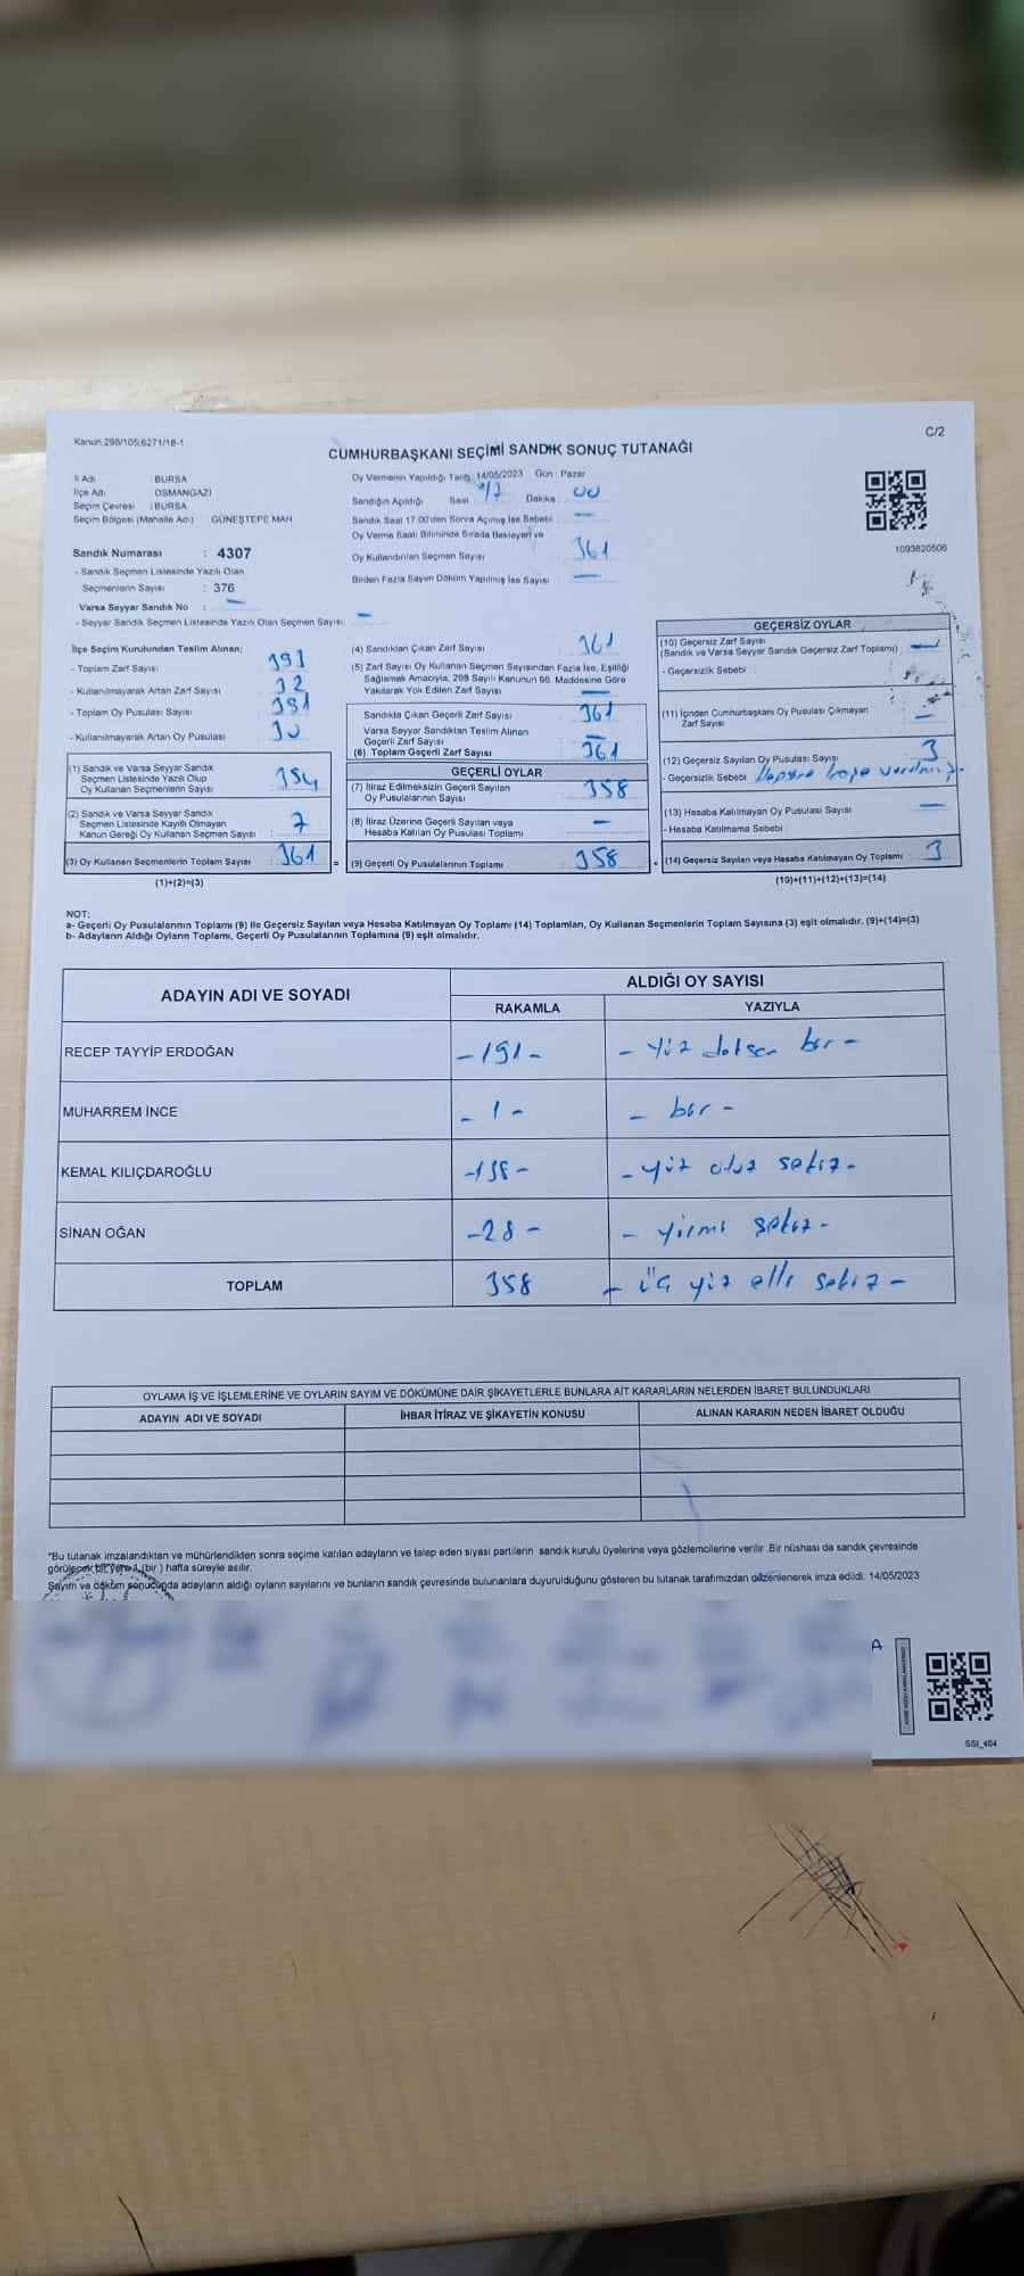 Kanun:298/105;6271/18-1
C/2
CUMHURBAŞKANI SEÇİMİ SANDIK SONUÇ TUTANAĞI
İl Adı : BURSA
İlçe Adı : OSMANGAZİ
Seçim Çevresi : BURSA
Seçim Bölgesi (Mahalle Adı) GÜNEŞTEPE MAH
Sandık Numarası : 4307
- Sandık Seçmen Listesinde Yazılı Olan
Seçmenlerin Sayısı : 376
Varsa Seyyar Sandık No : —
- Seyyar Sandık Seçmen Listesinde Yazılı Olan Seçmen Sayısı: —
Oy Vermenin Yapıldığı Tarih: 14/05/2023 Gün : Pazar
Sandığın Açıldığı Saat 17 Dakika 00
Sandık Saat 17:00'den Sonra Açılmış İse Sebebi —
Oy Verme Saati Bitiminde Sırada Bekleyen ve
Oy Kullandırılan Seçmen Sayısı 361
Birden Fazla Sayım Döküm Yapılmış İse Sayısı —
1093620606
İlçe Seçim Kurulundan Teslim Alınan;
- Toplam Zarf Sayısı 391
- Kullanılmayarak Artan Zarf Sayısı
- Toplam Oy Pusulası Sayısı 391
- Kullanılmayarak Artan Oy Pusulası 30
(1) Sandık ve Varsa Seyyar Sandık
Seçmen Listesinde Yazılı Olup
Oy Kullanan Seçmenlerin Sayısı 354
(2) Sandık ve Varsa Seyyar Sandık
Seçmen Listesinde Kayıtlı Olmayan
Kanun Gereği Oy Kullanan Seçmen Sayısı 7
(3) Oy Kullanan Seçmenlerin Toplam Sayısı 361 =
(1)+(2)=(3)
(4) Sandıktan Çıkan Zarf Sayısı 361
(5) Zarf Sayısı Oy Kullanan Seçmen Sayısından Fazla İse, Eşitliği
Sağlamak Amacıyla, 298 Sayılı Kanunun 98. Maddesine Göre
Yakılarak Yok Edilen Zarf Sayısı —
Sandıkta Çıkan Geçerli Zarf Sayısı 361
Varsa Seyyar Sandıktan Teslim Alınan
Geçerli Zarf Sayısı —
(6) Toplam Geçerli Zarf Sayısı 361
GEÇERLİ OYLAR
(7) İtiraz Edilmeksizin Geçerli Sayılan
Oy Pusulalarının Sayısı 358
(8) İtiraz Üzerine Geçerli Sayılan veya
Hesaba Katılan Oy Pusulası Toplamı —
(9) Geçerli Oy Pusulalarının Toplamı 358 +
GEÇERSİZ OYLAR
(10) Geçersiz Zarf Sayısı
(Sandık ve Varsa Seyyar Sandık Geçersiz Zarf Toplamı) —
- Geçersizlik Sebebi
(11) İçinden Cumhurbaşkanı Oy Pusulası Çıkmayan
Zarf Sayısı —
(12) Geçersiz Sayılan Oy Pusulası Sayısı 3
- Geçersizlik Sebebi
(13) Hesaba Katılmayan Oy Pusulası Sayısı —
- Hesaba Katılmama Sebebi
(14) Geçersiz Sayılan veya Hesaba Katılmayan Oy Toplamı 3
(10)+(11)+(12)+(13)=(14)
NOT:
a- Geçerli Oy Pusulalarının Toplamı (9) ile Geçersiz Sayılan veya Hesaba Katılmayan Oy Toplamı (14) Toplamları, Oy Kullanan Seçmenlerin Toplam Sayısına (3) eşit olmalıdır. (9)+(14)=(3)
b- Adayların Aldığı Oyların Toplamı, Geçerli Oy Pusulalarının Toplamına (9) eşit olmalıdır.
ADAYIN ADI VE SOYADI
ALDIĞI OY SAYISI
RAKAMLA YAZIYLA
RECEP TAYYİP ERDOĞAN - 191 - - yüz doksan bir -
MUHARREM İNCE - 1 - - bir -
KEMAL KILIÇDAROĞLU - 138 - - yüz otuz sekiz -
SİNAN OĞAN - 28 - - yirmi sekiz -
TOPLAM 358 - üç yüz elli sekiz -
OYLAMA İŞ VE İŞLEMLERİNE VE OYLARIN SAYIM VE DÖKÜMÜNE DAİR ŞİKAYETLERLE BUNLARA AİT KARARLARIN NELERDEN İBARET BULUNDUKLARI
ADAYIN ADI VE SOYADI İHBAR İTİRAZ VE ŞİKAYETİN KONUSU ALINAN KARARIN NEDEN İBARET OLDUĞU
*Bu tutanak imzalandıktan ve mühürlendikten sonra seçime katılan adayların ve talep eden siyasi partilerin sandık kurulu üyelerine veya gözlemcilerine verilir. Bir nüshası da sandık çevresinde
görülecek bir yere 1 (bir) hafta süreyle asılır.
Sayım ve döküm sonucunda adayların aldığı oyların sayılarını ve bunların sandık çevresinde bulunanlara duyurulduğunu gösteren bu tutanak tarafımızdan düzenlenerek imza edildi. 14/05/2023
A
SSI_404